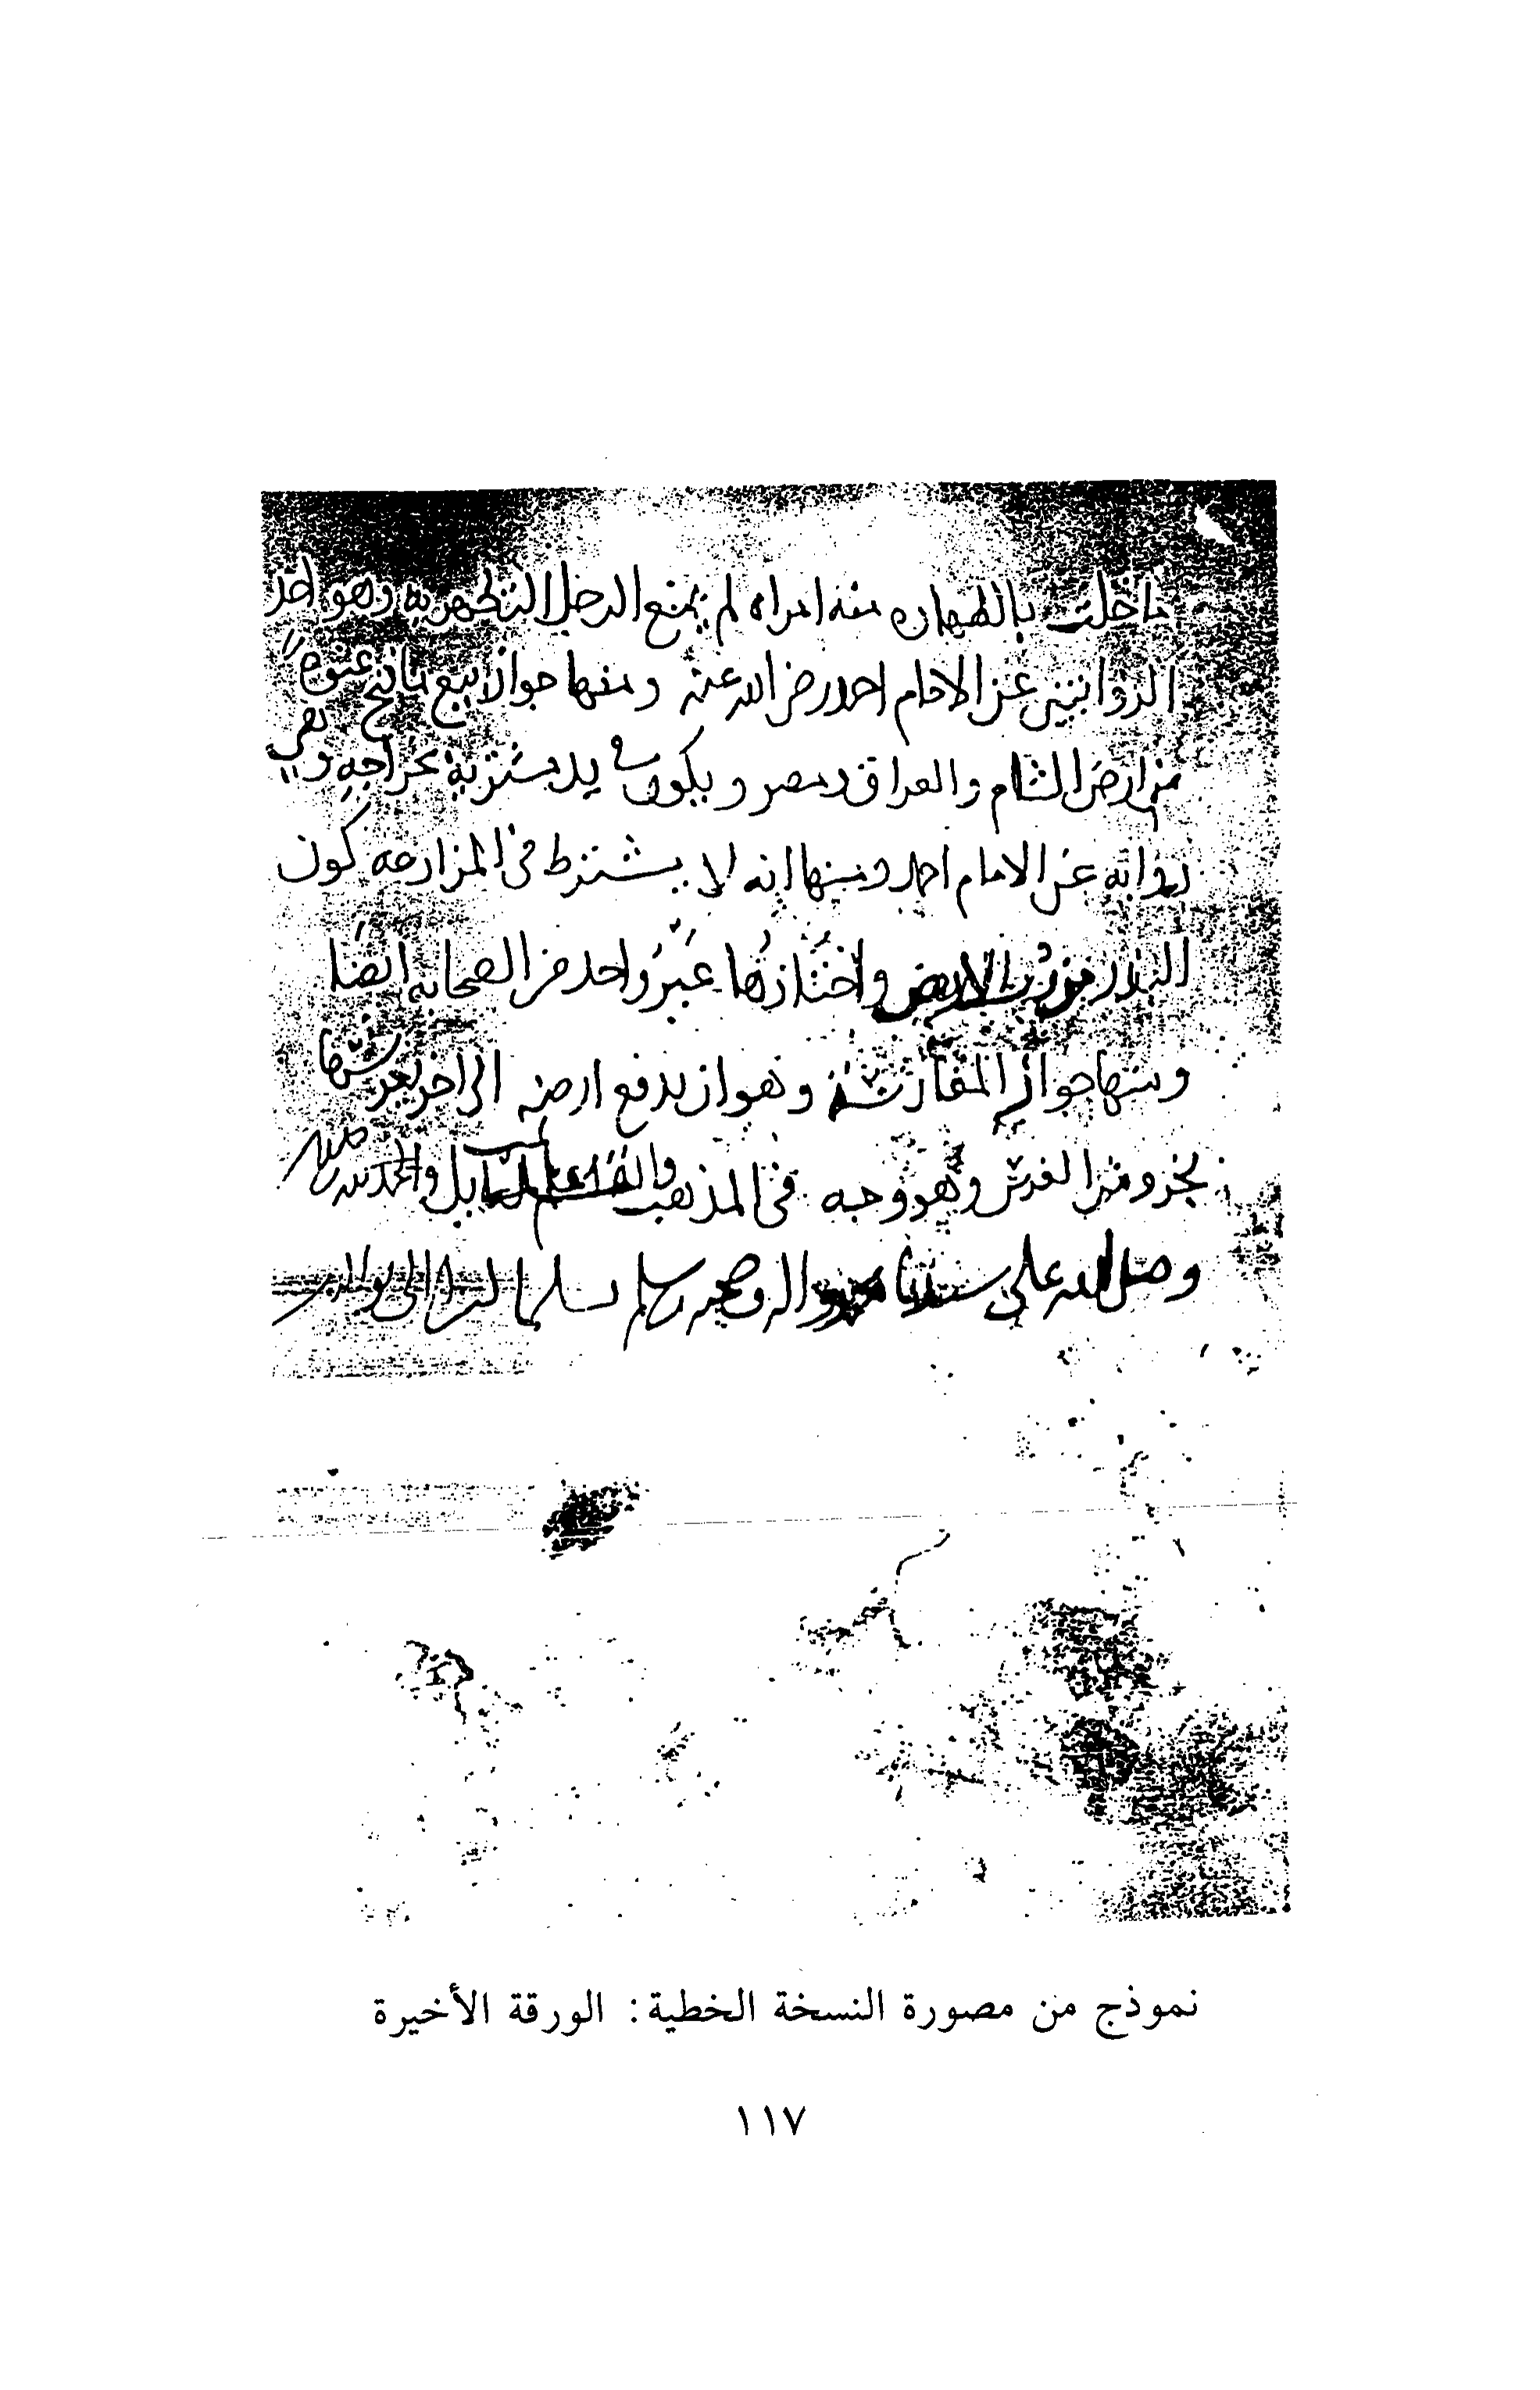 ما خلت بالطهاره منه امراه لم يمنع الرجل التطهر به وهو احد
الروايتين عن الامام احمد رضي الله عنه ومنها جواز بيع ما فتح عنوة
من ارض الشام والعراق ومصر ويكون في يد مشتريه بخراجه وهي
روايه عن الامام احمد ومنها انه لا يشترط في المزارعه كون
البذر من رب الارض واختارها غير واحد من الصحابه ايضا
ومنها جواز المغارسة وهو ان يدفع ارضه الى اخر يغرسها
بجزو من الغرس وهو وجه في المذهب والله اعلم والحمد لله
وصلى الله على سيدنا محمد واله وصحبه وسلم تسليما الى يوم الدين
نموذج من مصورة النسخة الخطية: الورقة الأخيرة
١١٧